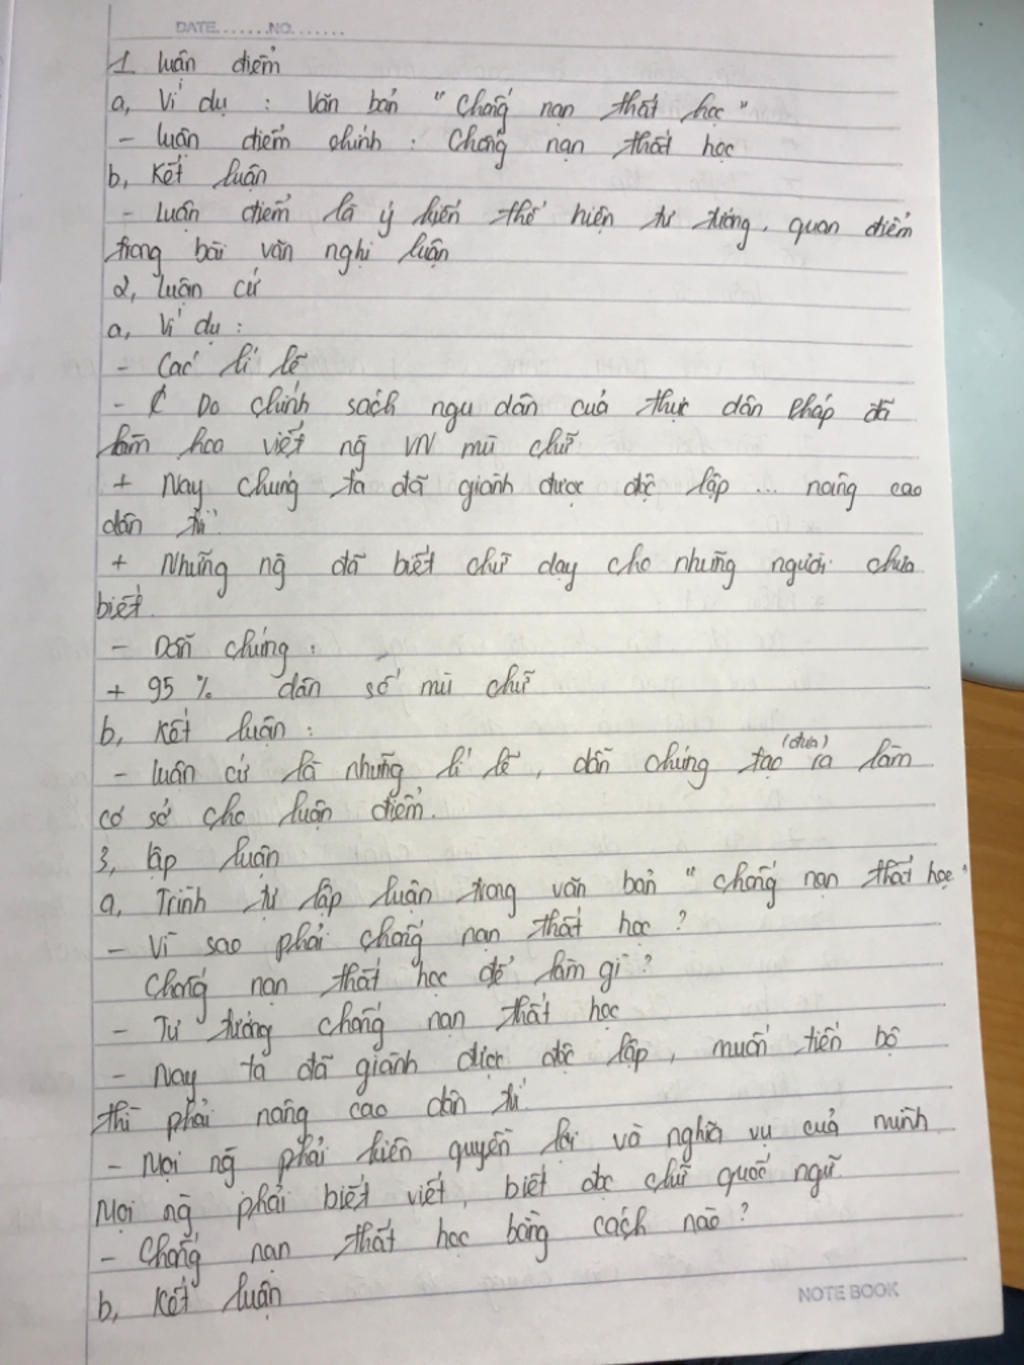 DATE.......NO.......
1 luận điểm
a, Ví dụ : Văn bản "Chống nạn thất học"
- luận điểm chính : Chống nạn thất học
b, Kết luận
- luận điểm là ý kiến thể hiện tư tưởng, quan điểm
trong bài văn nghị luận
2, luận cứ
a, Ví dụ :
- Các lí lẽ
- Do chính sách ngu dân của thực dân Pháp đã
làm viết ng̃ VN mù chữ
+ Nay chúng ta đã giành được độc lập ... nâng cao
dân trí
+ Những ng̃ đã biết chữ dạy cho những người chưa
biết.
- Dẫn chứng :
+ 95 % dân số mù chữ
b, Kết luận :
- luận cứ là những lí lẽ, dẫn chứng tạo (đưa) ra làm
cơ sở cho luận điểm.
3, lập luận
a, Trình tự lập luận trong văn bản "chống nạn thất học"
- Vì sao phải chống nạn thất học ?
Chống nạn thất học để làm gì ?
- Tư tưởng chống nạn thất học
- Nay ta đã giành độc lập, muốn tiến bộ
thì phải nâng cao dân trí
- Mọi ng̃ phải quyền lợi và nghĩa vụ của mình
Mọi ng̃ phải biết viết, biết đọc chữ quốc ngữ
- Chống nạn thất học bằng cách nào ?
b, Kết luận
NOTE BOOK